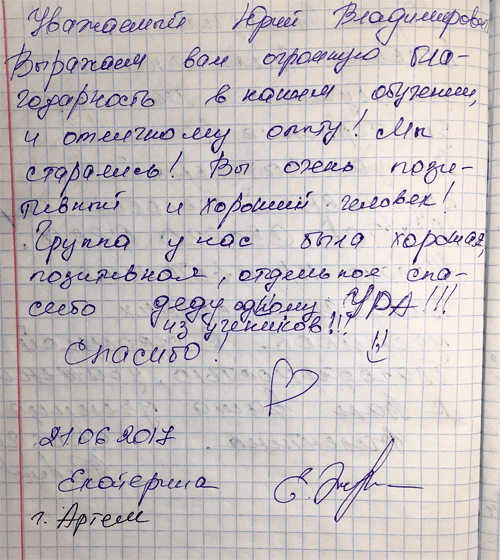 Уважаемый Юрий Владимирович
Выражаем вам огромную бла-
годарность в нашем обучении,
и отличному опыту! Мы
старались! Вы очень пози-
тивный и хороший человек!
Группа у нас была хорошая,
позитивная, отдельное спа-
сибо деду одному УРА!!!
из учеников!!!
Спасибо!
21.06.2017
Екатерина
г. Артем